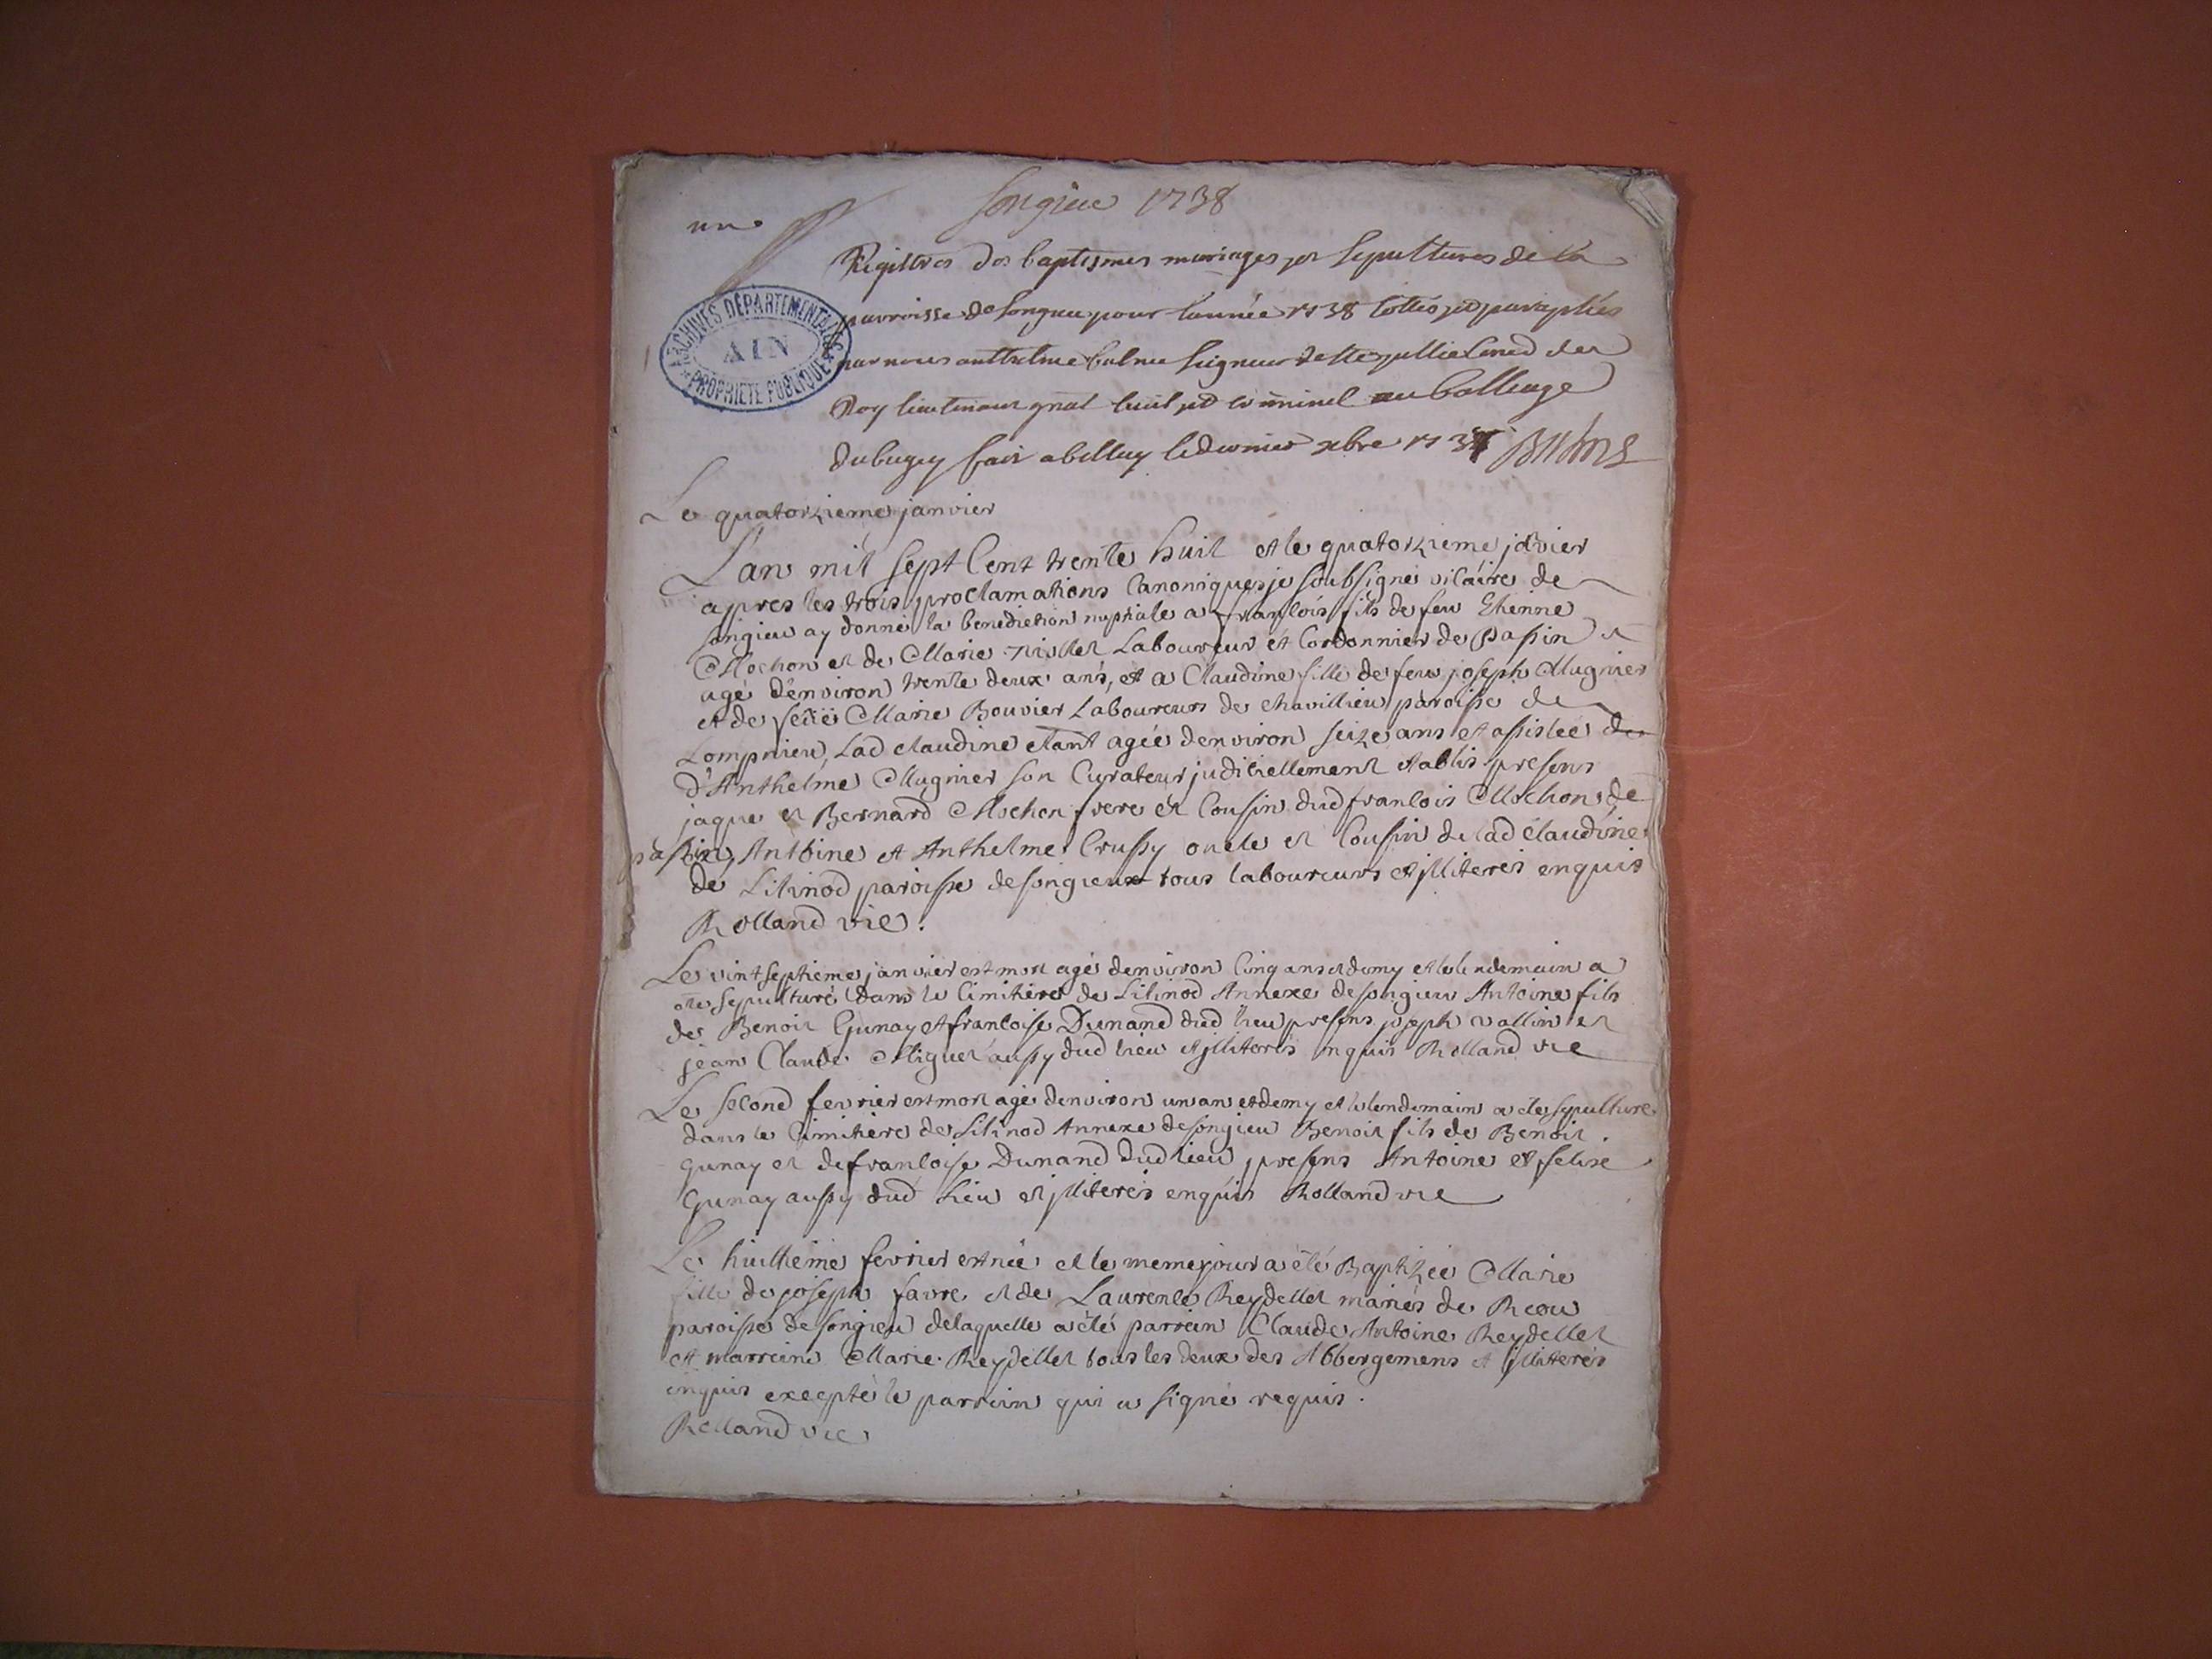 Songieu 1738
un
Registres des baptismes mariages et sepultures de la
parroisse de Songieu pour l'année 1738 cottés et paraphés
par nous anthelme balme seigneur de Ste Jullie Coner du
Roy lieutenant gñal civil et criminel au balliage
du bugey fait a belley le dernier xbre 1737 Balme
ARCHIVES DÉPARTEMENTALES
AIN
PROPRIÉTÉ PUBLIQUE
Le quatorzieme janvier
L'an mil sept Cent trente huit et le quatorzieme jãvier
apres les trois proclamations Canoniques je soubsigné vicaire de
songieu ay donné la benediction nuptiale a francois fils de feu Etienne
Mochon et de Marie Laboureur et Cordonnier de passin
agé d'environ trente deux ans, et a Claudine fille de feu joseph Mugnier
et de feüe Marie Bouvier Laboureurs de chavillieu paroisse de
Lompnieu, Lad claudine etant agée denviron seize ans et assistée de
d'Anthelme Mugnier son Curateur juditiellement etablis presens
jaque et Bernard Mochon frere et Cousin dud francois Mochon de
passin, Antoine et Anthelme Crussy oncle et Cousin de lad claudine
de Lilinod paroisse de songieux tous laboureurs et jlliterés enquis
Rolland vic.
Le vint septieme janvier est mort agé denviron Cinq ans et demy et le lendemain a
eté sepulturé dans le Cimitiere de Lilinod Annexe de songieu Antoine fils
de Benoit Gunay et francoise Dunand dud lieu presens joseph vallin et
jean Claude Miguet aussy dud lieu et jlliterés enquis Rolland vic
Le second fevrier est mort agé denviron un an et demy et le lendemain a eté sepulturé
dans le Cimitiere de Lilinod Annexe de songieu Benoit fils de Benoit
gunay et de francoise Dunand dud lieu presens Antoine et felixe
Gunay aussy dud lieu et jlliterés enquis Rolland vic
Le huittieme fevrier est née et le meme jour a été Baptizée Marie
fille de joseph favre et de Laurence Reydellet mariés de
paroisse de songieu de laquelle a été parrain Claude Antoine Reydellet
et marreine Marie Reydellet tous les deux des Abbergemens et jlliterés
enquis excepté le parrein qui a signé requis.
Rolland vic